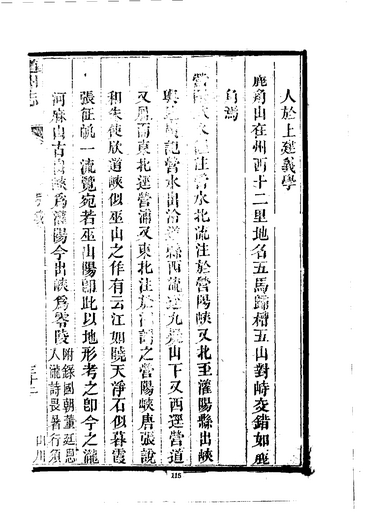 人於上建義學
鹿角山在州西十二里地名五馬歸槽五山對峙交錯如鹿
角焉
營水注營水北流注於營陽峽又北至灌陽縣出峽
記營水出泠道縣西流逕九疑山下又西逕營道
又西而東北逕營浦又東北注於謂之營陽峽唐張說
和朱使欣道峽似巫山之作有云江如曉天淨石似暮霞
張征帆一流覽宛若巫山陽即此以地形考之即今之瀧
河麻山古峽為灌陽今出峽為零陵
附錄國朝董廷恩
入瀧詩畏暑行須
志
三十二
山川
115